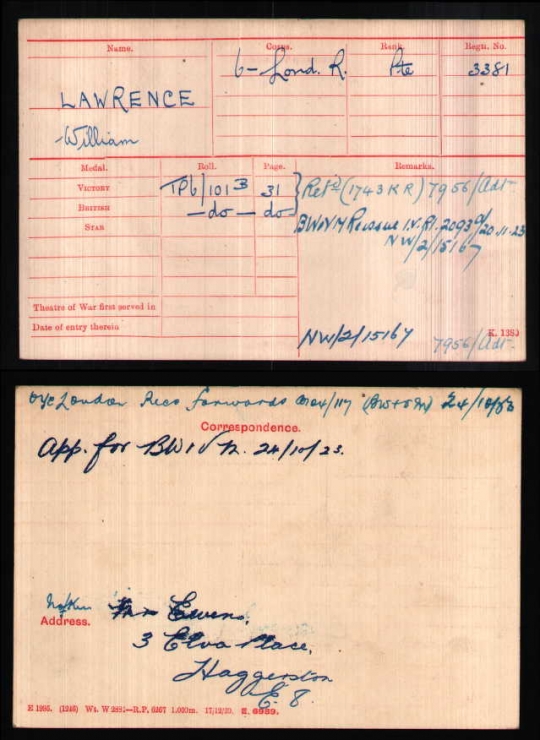 Name. Corps. Rank. Regtl. No.
LAWRENCE 6-Lond. R. Pte 3381
William
Medal. Roll. Page. Remarks.
VICTORY TP6/101 B 31 Retd (1743 KR) 7956/Adt
BRITISH -do- do
STAR BW&VM Reissue I.V. R1. 2093 20.11.23
NW/2/15167
Theatre of War first served in
Date of entry therein
NW/2/15167 7956/Adt.
K. 1380
London Recs forwards 24/10/
Correspondence.
App. for BW & V M. 24/10/23.
Address. Evens,
3 Elva Place,
Haggerston
E. 8.
E 1966. (1246) Wt. W 2891—R.P. 6267 1,000m. 17/12/20. E. 6989.